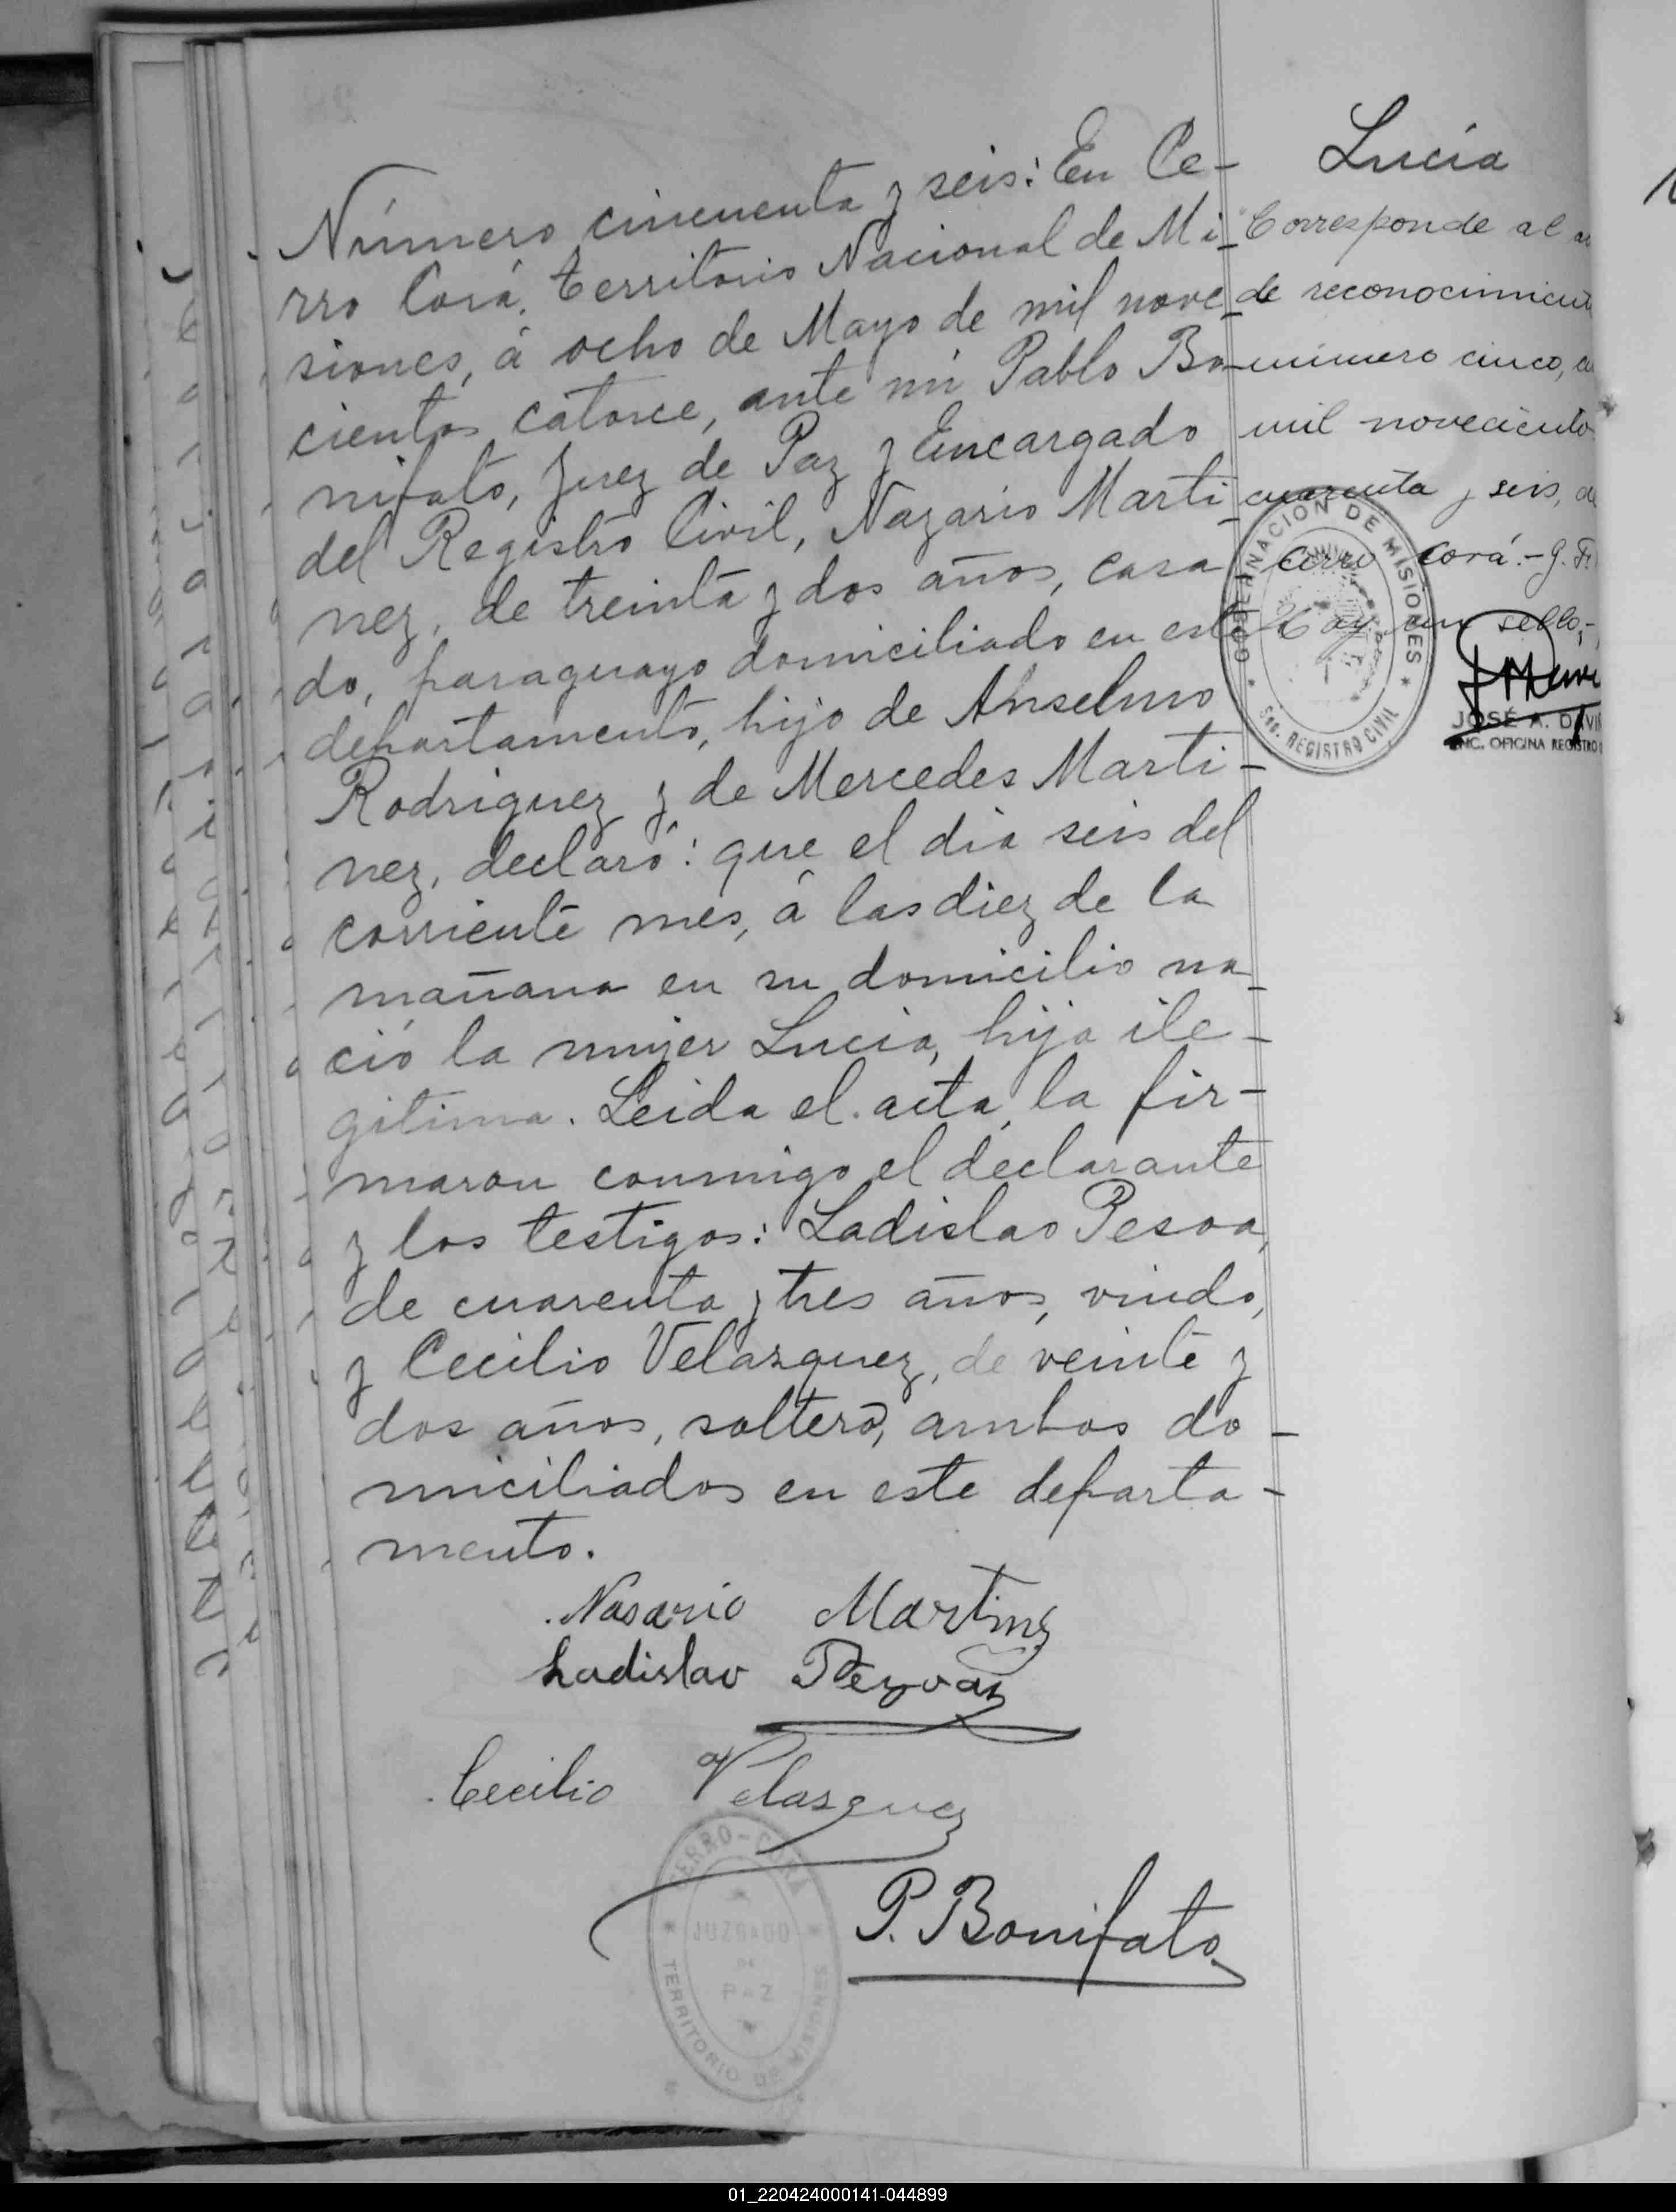 Número cincuenta y seis: En Ce-
rro Corá, Territorio Nacional de Mi-
siones, á ocho de Mayo de mil nove-
cientos catorce, ante mi Pablo Bo-
nifato, Juez de Paz y Encargado
del Registro Civil, Nazario Marti-
nez, de treinta y dos años, casa-
do, paraguayo domiciliado en este
departamento, hijo de Anselmo
Rodriguez y de Mercedes Marti-
nez, declaró: que el dia seis del
corriente mes, á las diez de la
mañana en su domicilio na-
ció la mujer Lucia, hija ile-
gitima. Leida el acta, la fir-
maron conmigo el declarante
y los testigos: Ladislao Pesoa,
de cuarenta y tres años, viudo,
y Cecilio Velazquez, de veinte y
dos años, soltero, ambos do-
miciliados en este departa-
mento.
Nasario Martinz
Ladislao
Cecilio Velasquez
P. Bonifato
CERRO-CORA
JUZGADO
DE
PAZ
TERRITORIO DE MISIONES
Lucía
Corresponde al
de reconocimient
número cinco,
mil noveciento
cuarenta y seis,
cerro corá.-
Hay un sello,-
GOBERNACION DE MISIONES
Sec. REGISTRO CIVIL
JOSÉ A. D
ENC. OFICINA REGISTRO
01_220424000141-044899